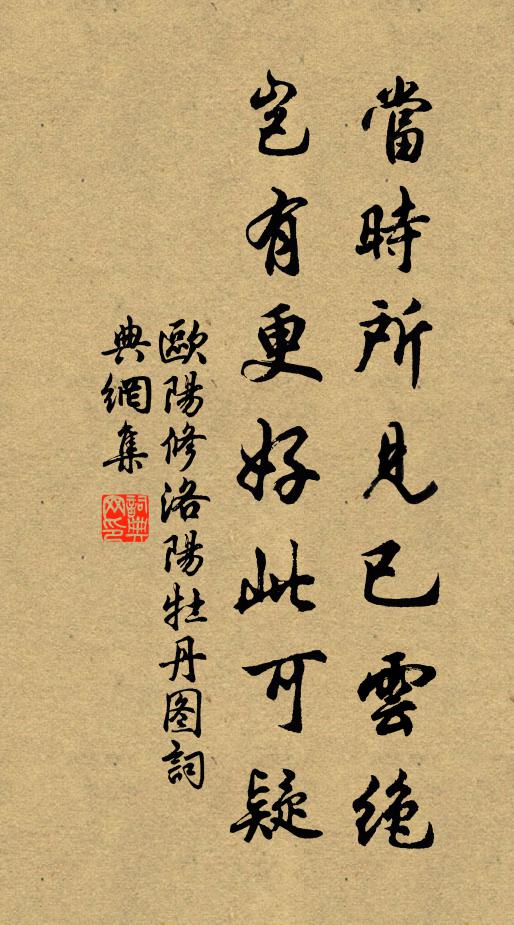 當時所見已雲絶
豈有更好此可疑
歐陽修洛陽牡丹图詞
典網集
詞典网印